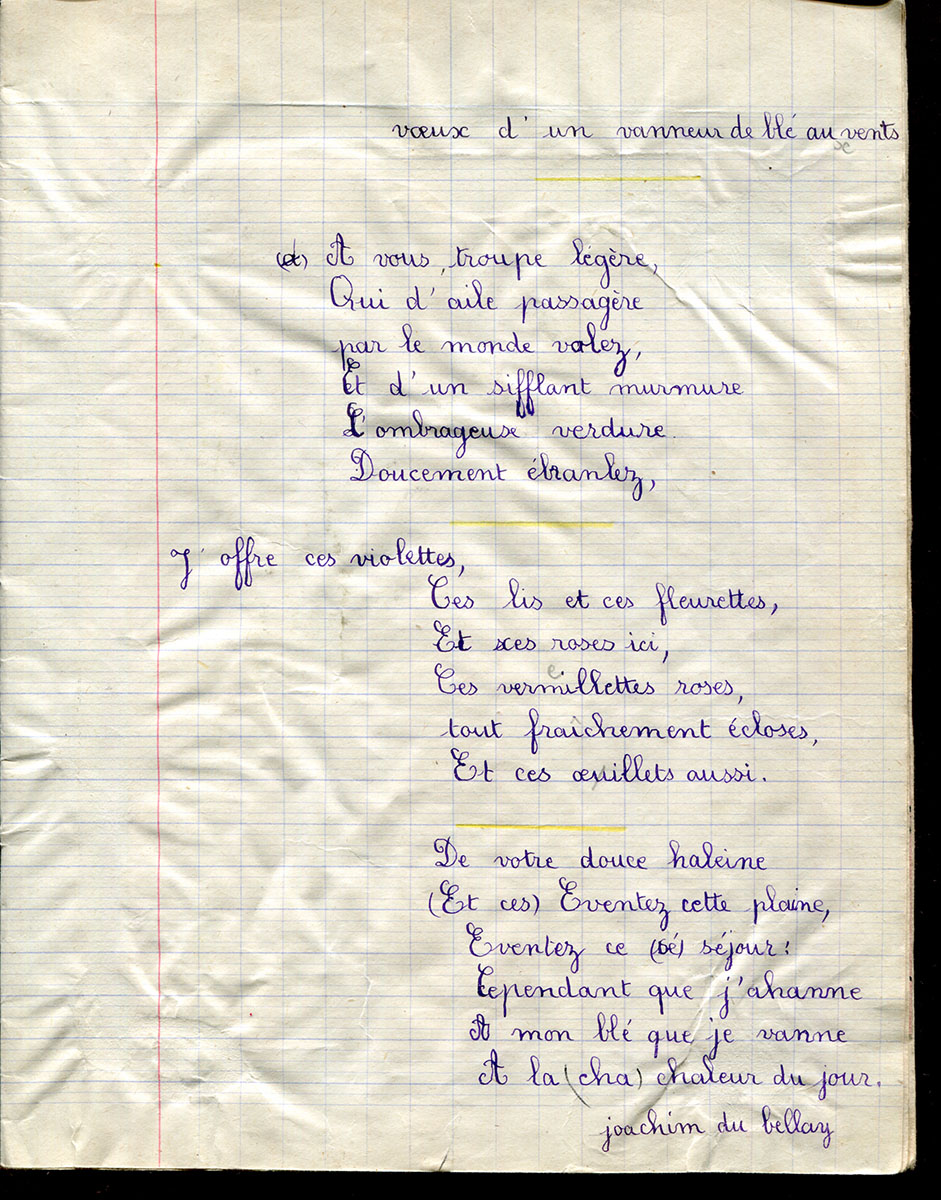 vœux d'un vanneur de blé aux vents
(d) A vous, troupe légère,
Qui d'aile passagère
par le monde volez,
Et d'un sifflant murmure
L'ombrageuse verdure
Doucement ébranlez,
J'offre ces violettes,
Ces lis et ces fleurettes,
Et ces roses ici,
Ces vermeillettes roses,
tout fraîchement écloses,
Et ces œuillets aussi.
De votre douce haleine
(Et ces) Eventez cette plaine,
Eventez ce (sé) séjour:
Cependant que j'ahanne
A mon blé que je vanne
A la (cha) chaleur du jour.
joachim du bellay